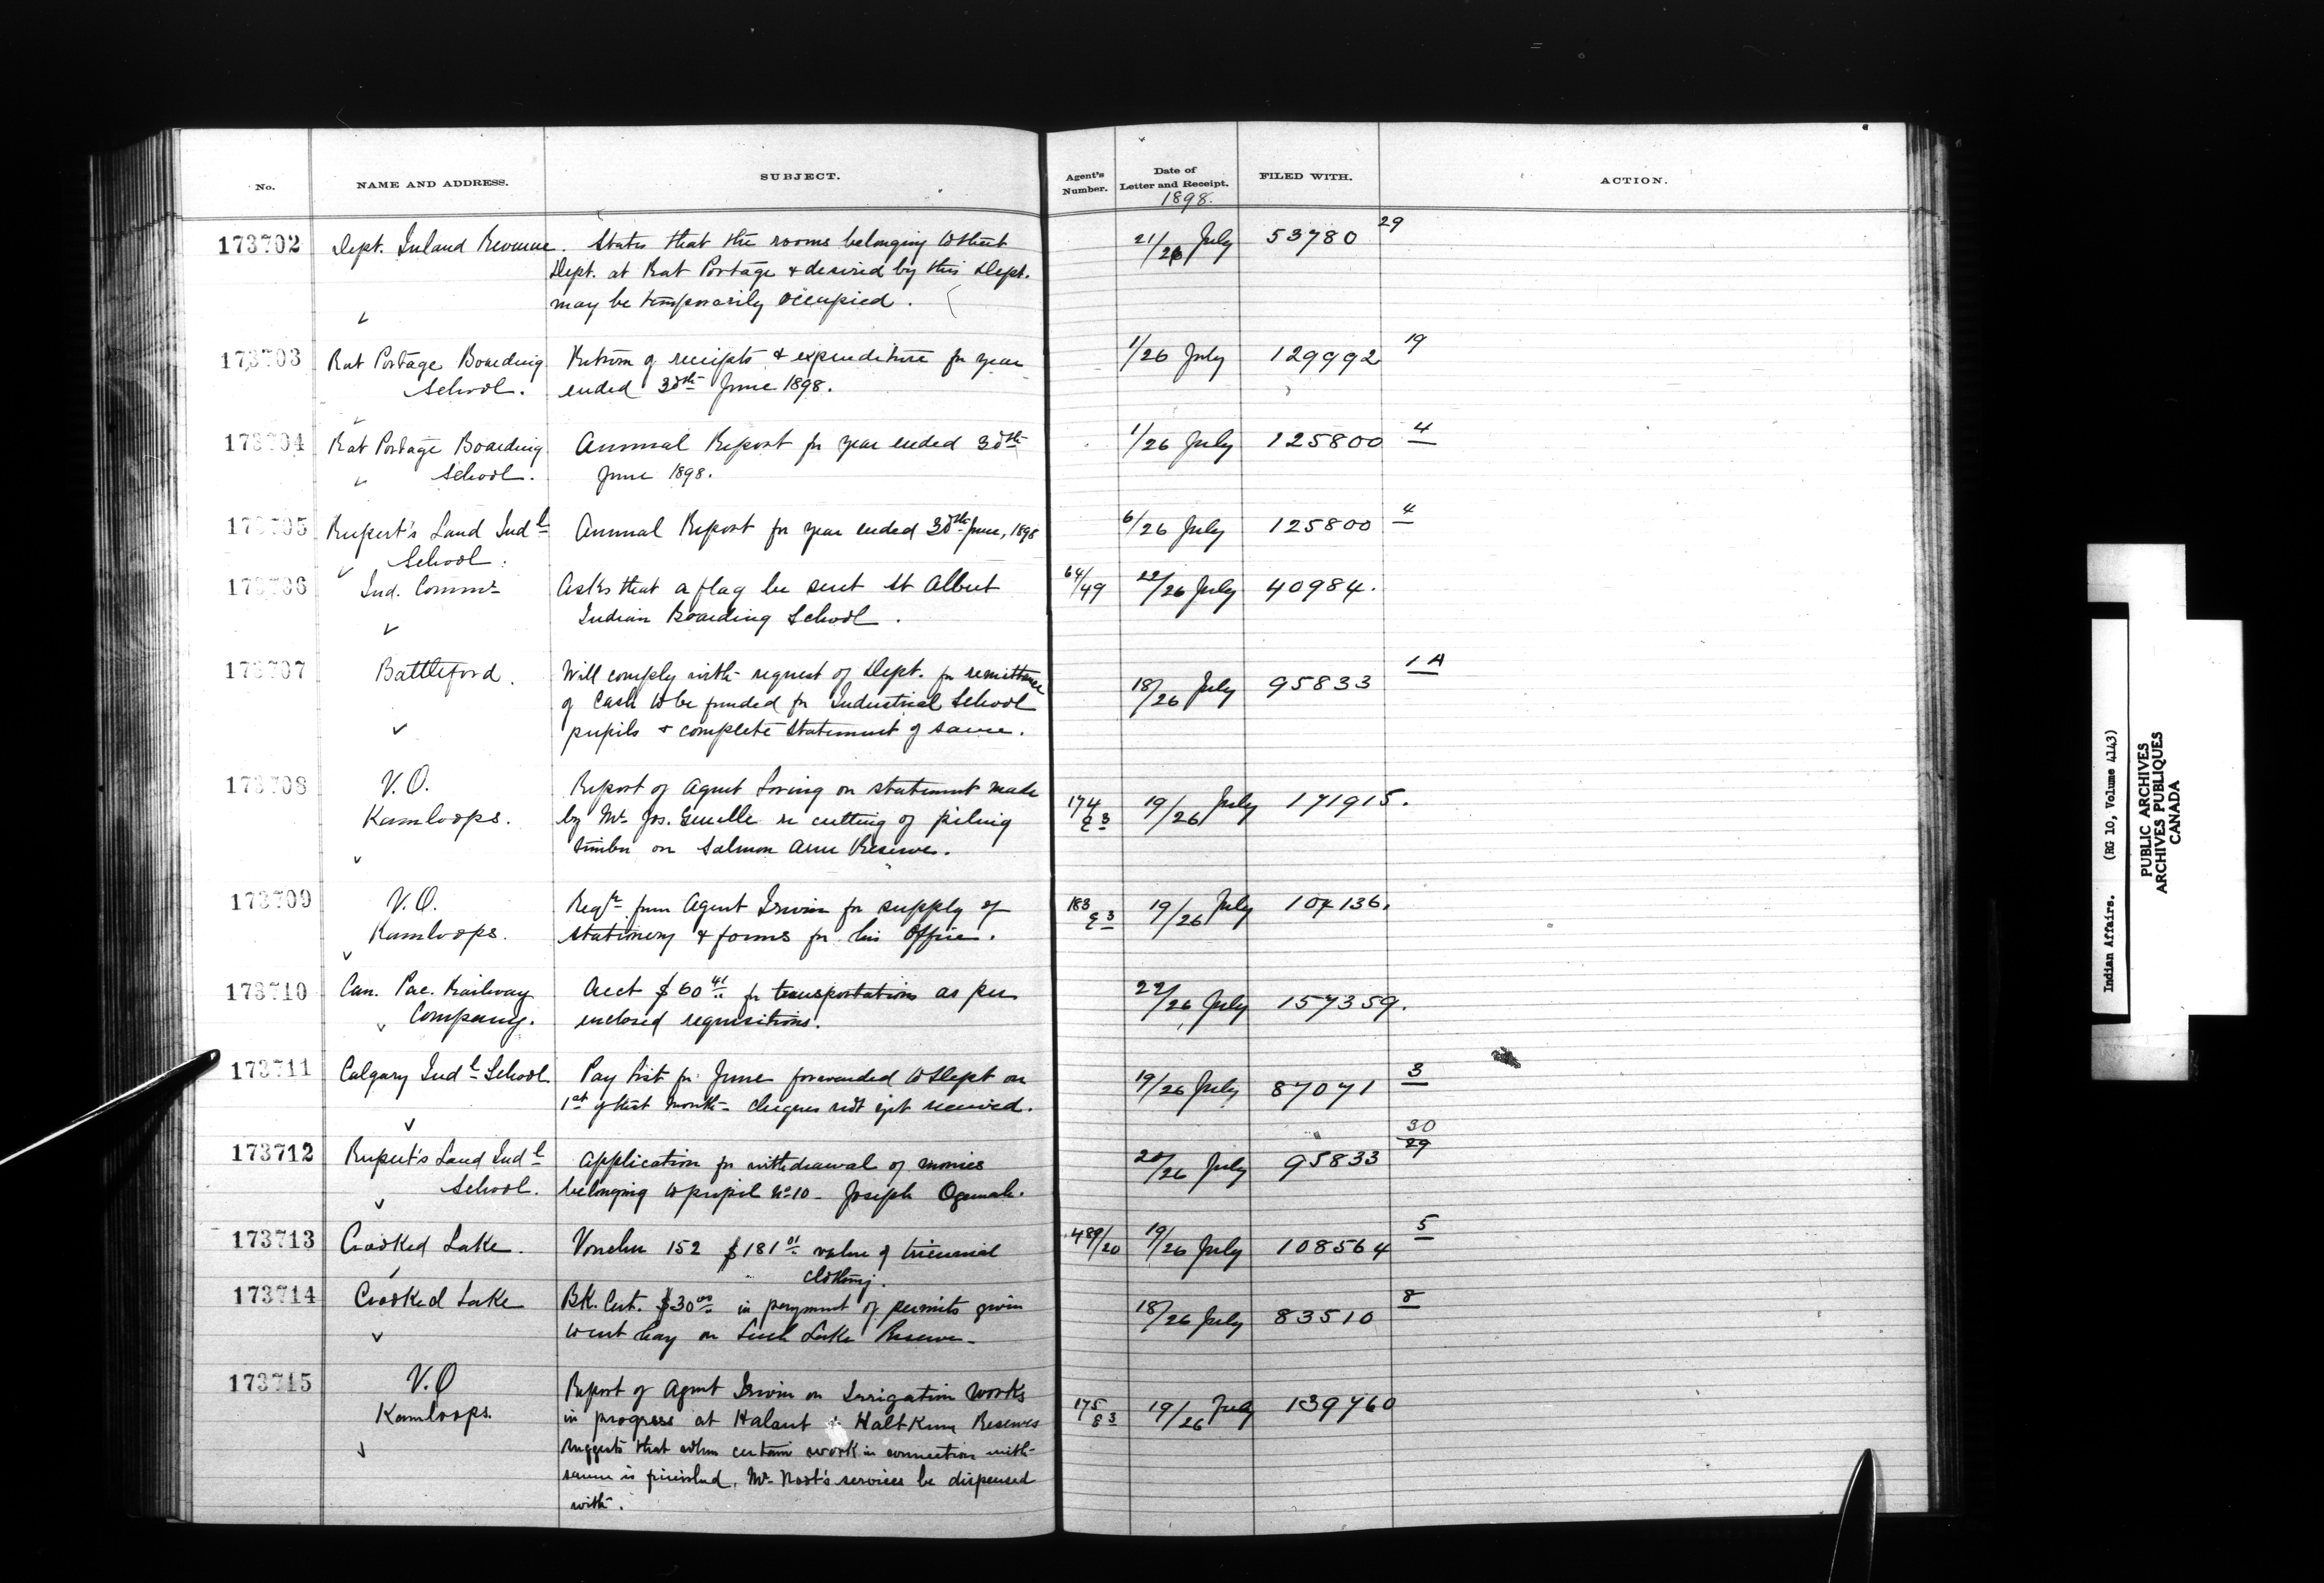 No. NAME AND ADDRESS. SUBJECT. Agent's Number. Date of Letter and Receipt. 1898. FILED WITH. ACTION.
173702 Dept. Inland Revenue. States that the rooms belonging to that 21/26 July 53780 29
Dept. at Rat Portage & desired by this Dept.
may be temporarily occupied.
173703 Rat Portage Boarding Return of receipts & expenditure for year 1/26 July 129992 19
School. ended 30th June 1898.
173704 Rat Portage Boarding Annual Report for year ended 30th 1/26 July 125800 4
School. June 1898.
173705 Rupert's Land Indl Annual Report for year ended 30th June, 1898 6/26 July 125800 4
School.
173706 Ind. Commr Asks that a flag be sent St Albert 64/49 22/26 July 40984.
Indian Boarding School.
173707 Battleford. Will comply with request of Dept. for remittance 18/26 July 95833 1A
of cash to be funded for Industrial School
pupils & complete statement of same.
173708 V.O. Report of Agent on statement made 174 19/26 July 171915.
Kamloops. by Mr Jos. Genelle re cutting of piling
timber on Salmon Arm Reserve.
173709 V.O. Reqn from Agent Irwin for supply of 183 19/26 July 104136.
Kamloops. stationery & forms for his Office.
173710 Can. Pac. Railway Acct $60 41 for transportations as per 22/26 July 157359.
Company. enclosed requisitions.
173711 Calgary Indl School Pay list for June forwarded to Dept on 19/26 July 87071 3
1st of that month - cheques not yet received.
173712 Rupert's Land Indl Application for withdrawal of monies 20/26 July 95833 30 29
School. belonging to pupil No 10 - Joseph Ogemah.
173713 Crooked Lake. Voucher 152 $181 01 value of triennial 489/20 19/26 July 108564 5
clothing.
173714 Crooked Lake Bk. Cert. $30 00 in payment of permits given 18/26 July 83510 8
to cut hay on Leech Lake Reserve.
173715 V.O Report of Agent Irwin on Irrigation Works 175 19/26 July 139760
Kamloops. in progress at Halaut & Haltkum Reserves
suggests that when certain work in connection with
same is finished, Mr. Root's services be dispensed
with.
Indian Affairs. (RG 10, Volume 4143)
PUBLIC ARCHIVES
ARCHIVES PUBLIQUES
CANADA